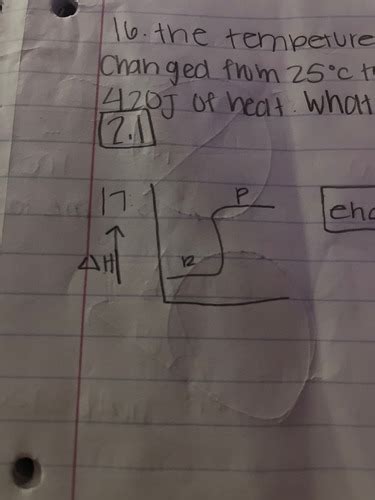 16. the tempeture
Changed from 25°c t
420J of heat. What
2.1
17.
P
endo
R
ΔH